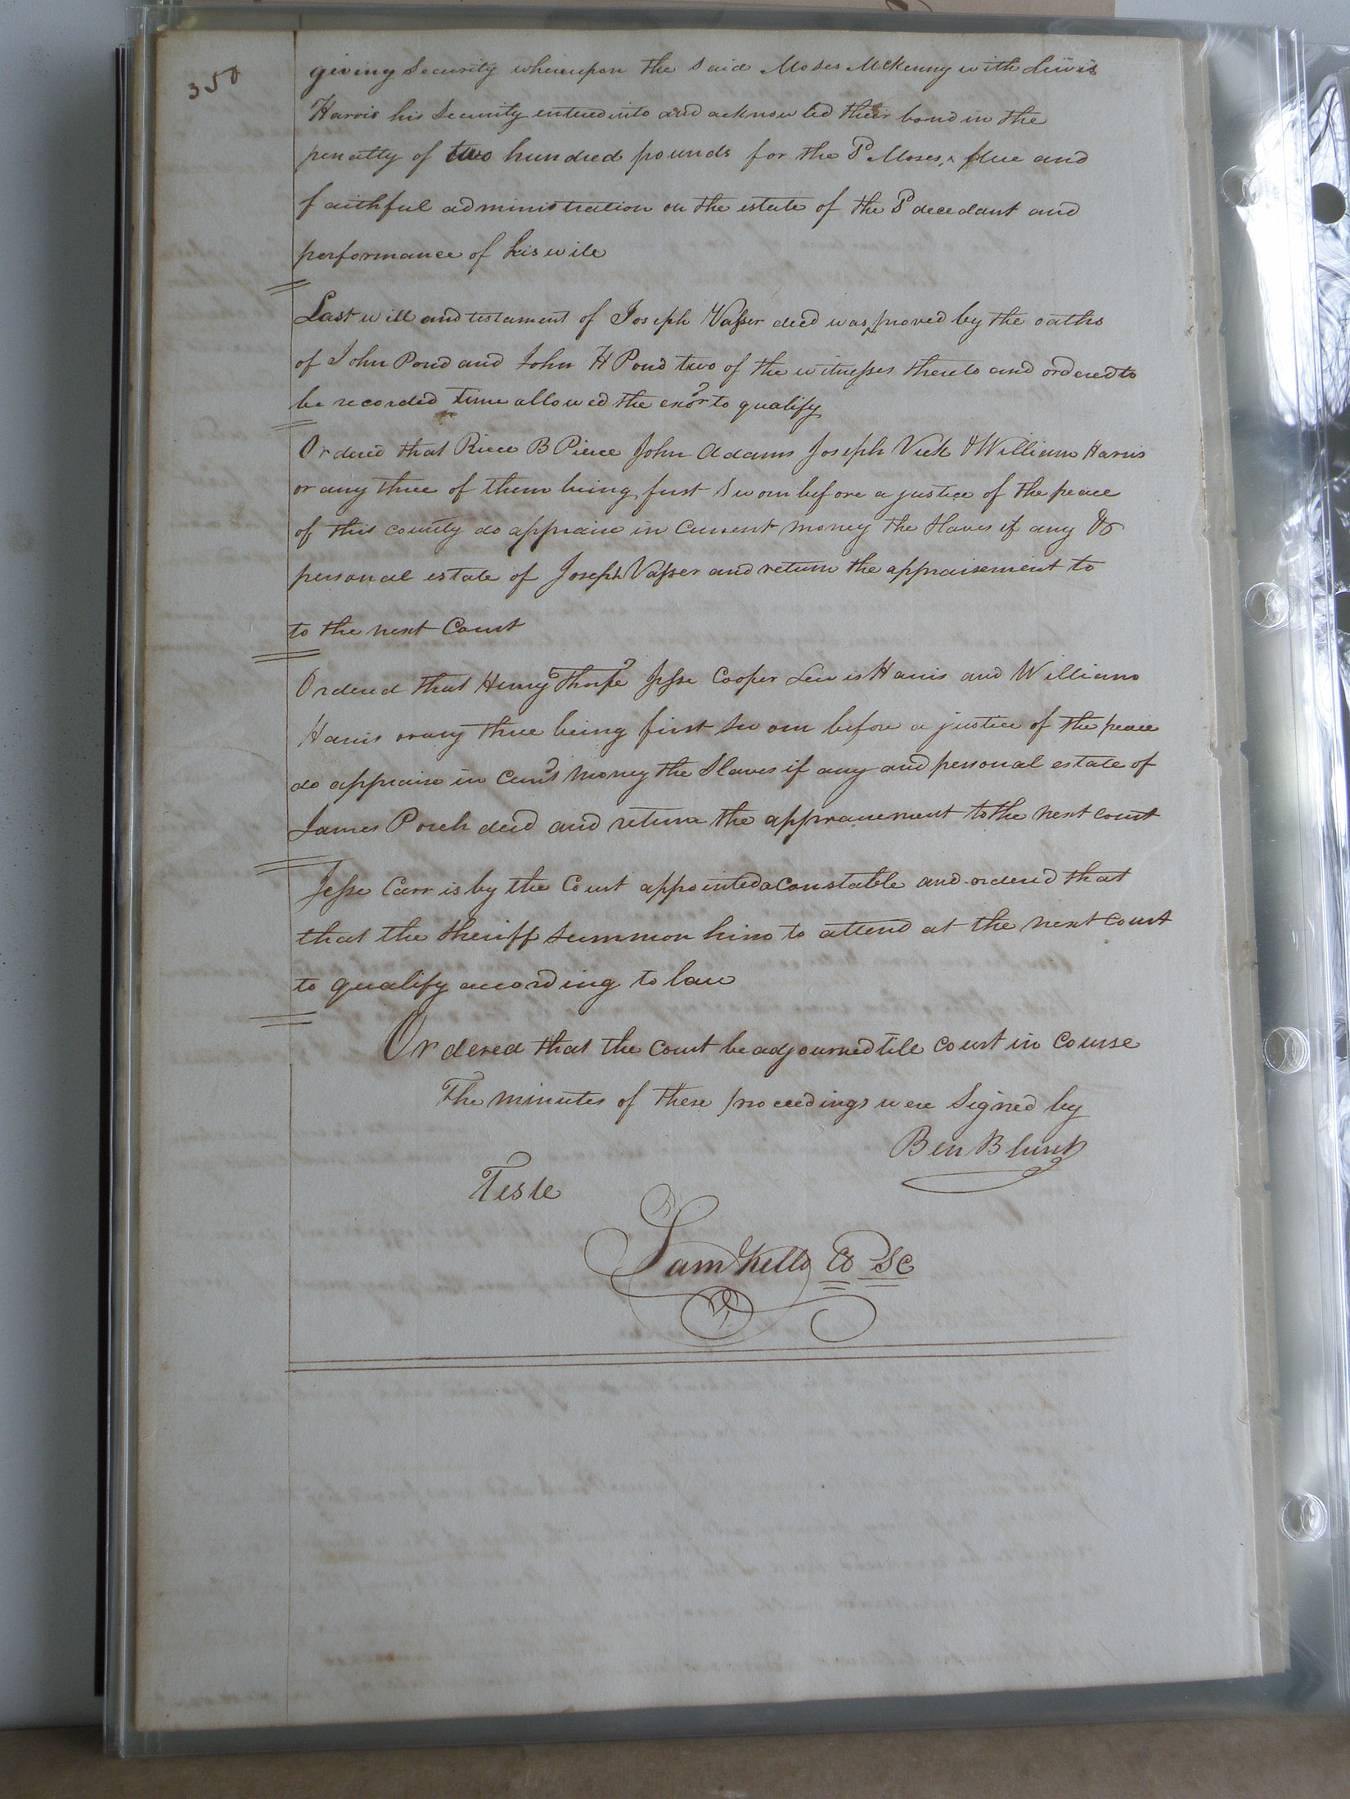 350
giving Security whereupon the Said Moses McKenny with Lewis
Harris his Security entered into and acknowled their bond in the
penalty of two hundred pounds for the Sd Moses, s due and
faithful administration on the estate of the Sd decedant and
performance of his wile
Last will and testament of Joseph Vasser decd was proved by the oaths
of John Pond and John H Pond two of the witnesses thereto and ordered to
be recorded time allowed the exor to qualify
Ordered that Rice B Pierce John Adams Joseph Vick & William Harris
or any three of them being first Sworn before a justice of the peace
of this county do appraise in Current money the Slaves if any &
personal estate of Joseph Vasser and return the appraisement to
to the next Court
Ordered that Henry Thorpe Jesse Cooper Lewis Harris and William
Harris or any three being first Sworn before a justice of the peace
do appraise in Curt money the Slaves if any and personal estate of
James Porch decd and return the appraisement to the next court
Jesse Carr is by the Court appointed a Constable and ordered that
that the Sheriff Summon him to attend at the next Court
to qualify according to law
Ordered that the Court be adjourned tile Court in Course
The minutes of these proceedings were Signed by
Ben Blunt
Teste
Sam Kello Co SC